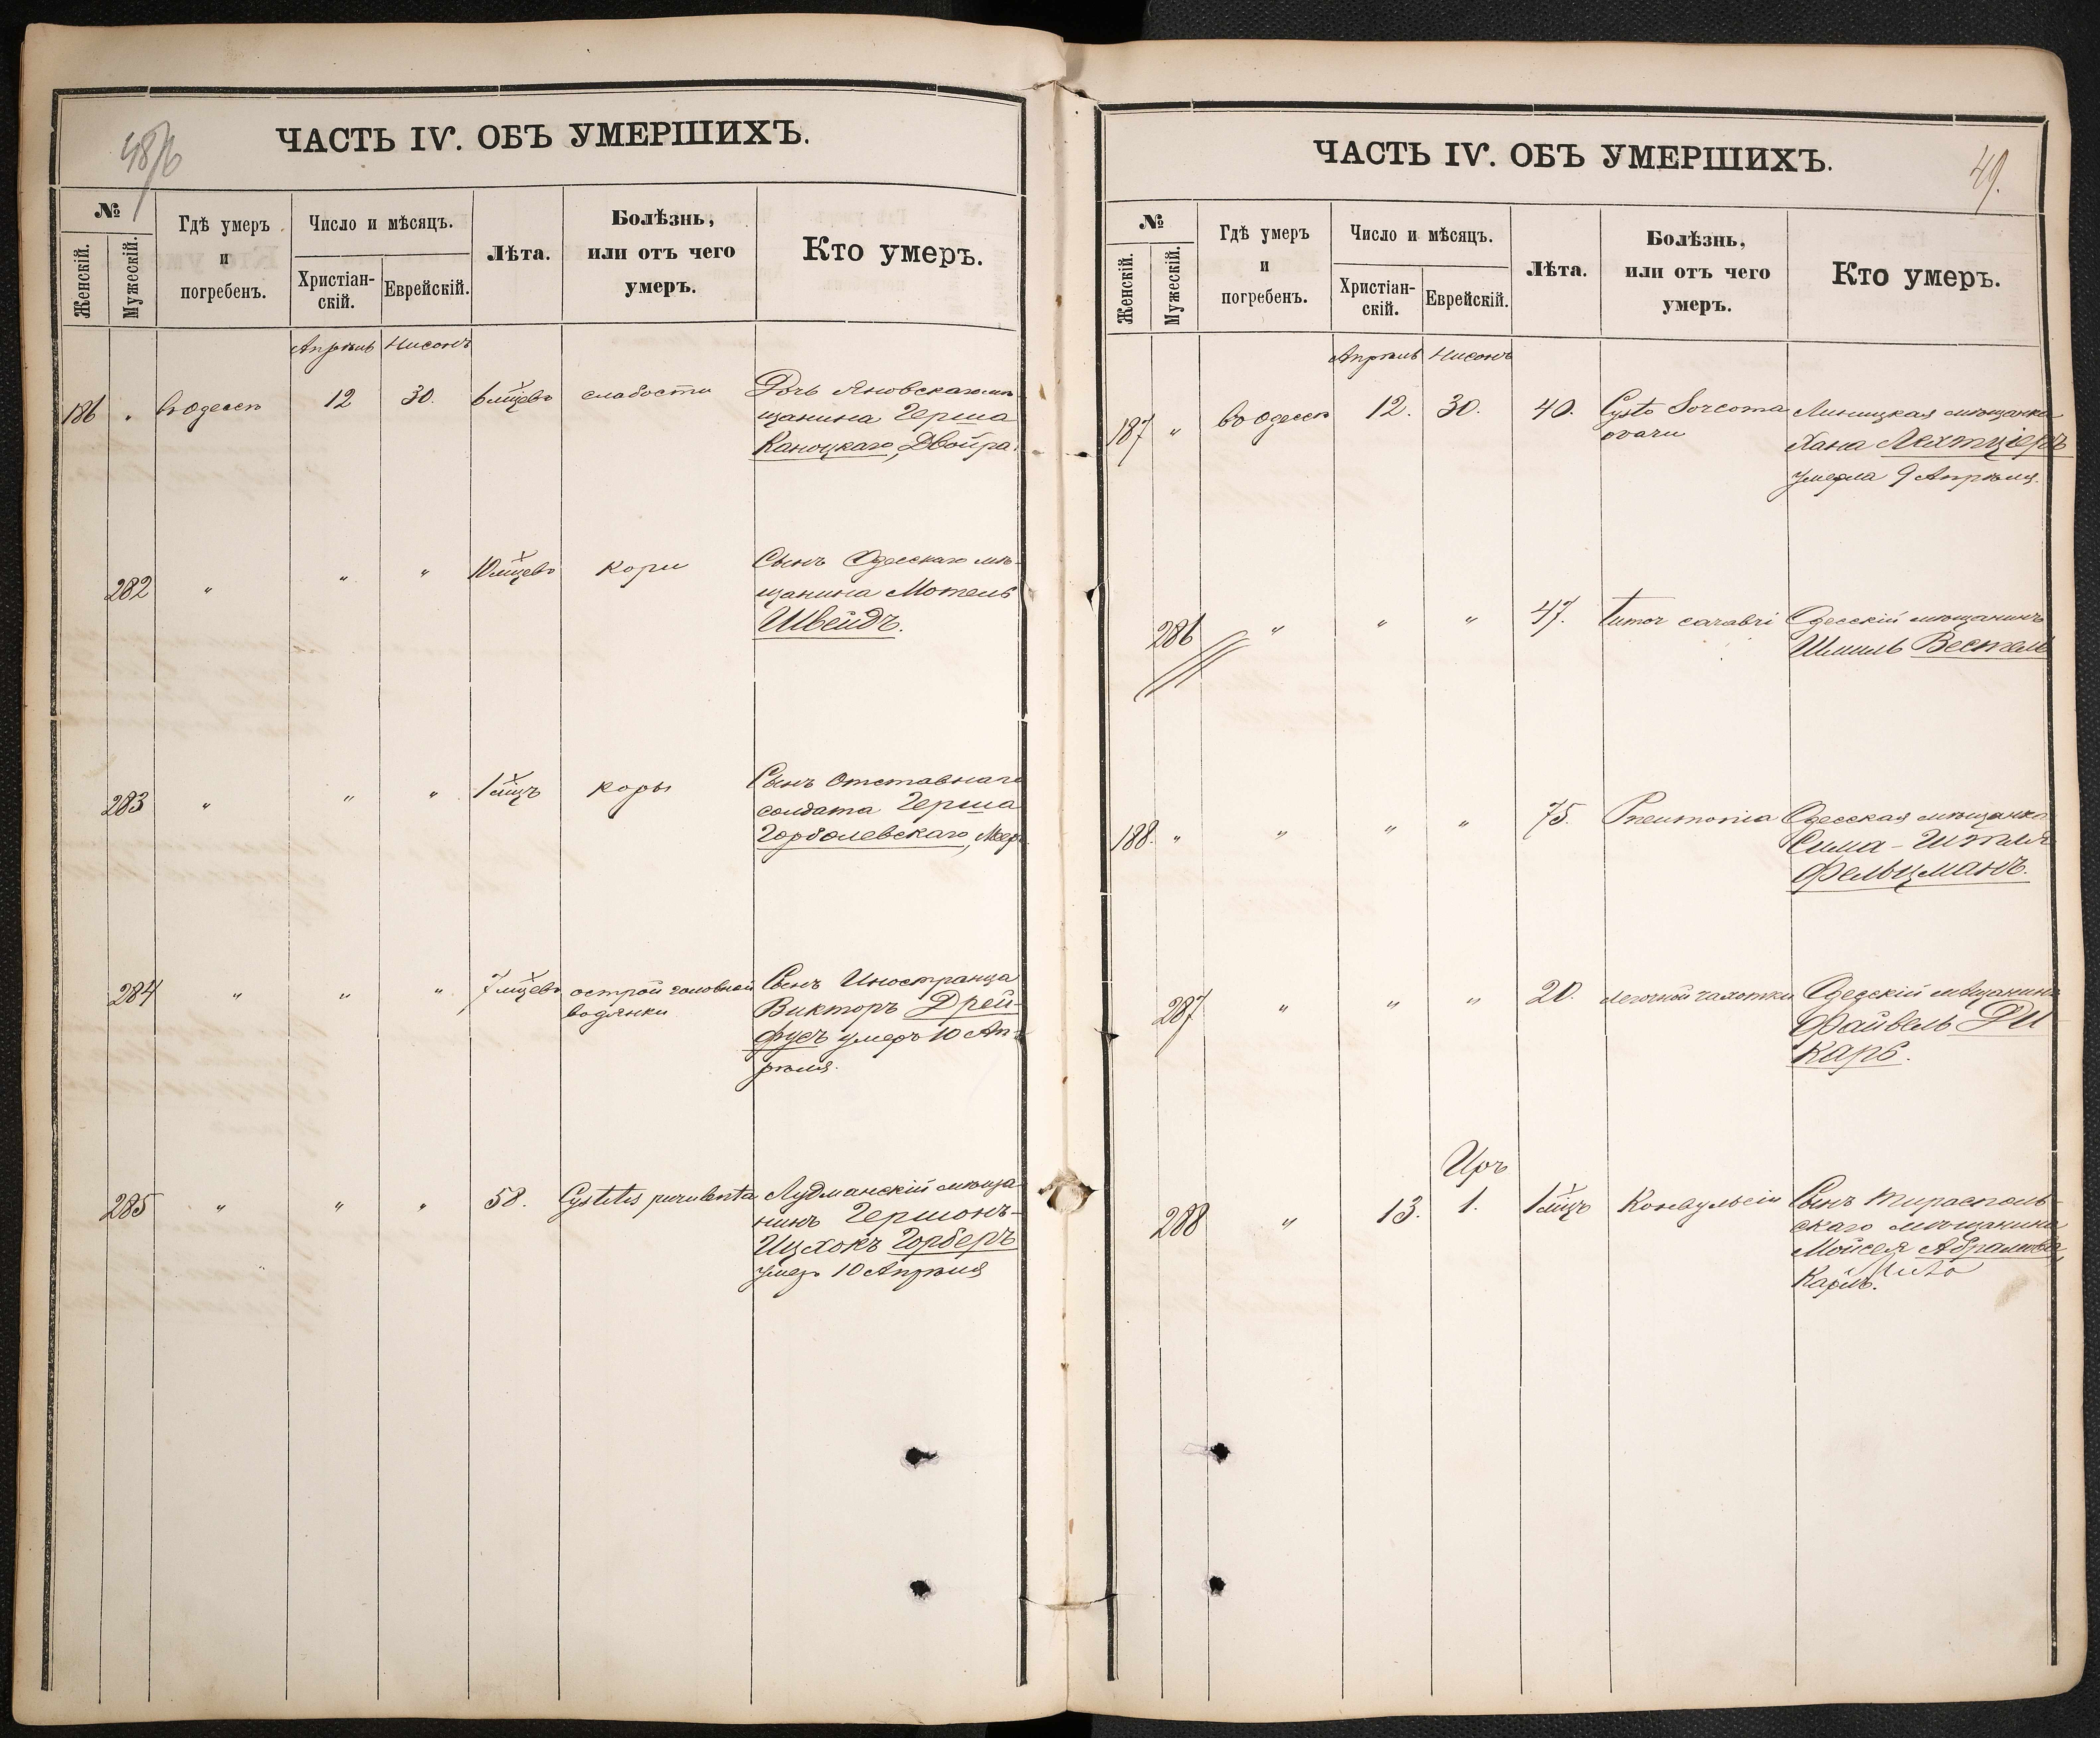 48/б
ЧАСТЬ IV. ОБЪ УМЕРШИХЪ.
№
Женскій.
Мужескій.
Гдѣ умеръ
и
погребенъ.
Число и мѣсяцъ.
Христіан-
скій.
Еврейскій.
Лѣта.
Болѣзнь,
или отъ чего
умеръ.
Кто умеръ.
Апрѣль Нисонъ
186 " въ Одессѣ 12 30. 6 мцевъ слабости Дочь Яновскаго мѣ-
щанина Герша
Каноцкаго, Двойра.
282 " " " 10 мцевъ кори Сынъ Одесскаго мѣ-
щанина Мотель
Швейдъ.
283 " " " 1 мцъ коры Сынъ Отставнаго
солдата Герша
Горболевскаго, Меер
284 " " " 7 мцевъ острой головной Сынъ Иностранца
водянки Викторъ Дрей-
фусъ умеръ 10 Ап-
рѣля.
285 " " " 58. Cystitis purulenta Лудманскій мѣща-
нинъ Гершонъ-
Ицхокъ Горберъ
умеръ 10 Апрѣля
ЧАСТЬ IV. ОБЪ УМЕРШИХЪ.
49.
№
Женскій.
Мужескій.
Гдѣ умеръ
и
погребенъ.
Число и мѣсяцъ.
Христіан-
скій.
Еврейскій.
Лѣта.
Болѣзнь,
или отъ чего
умеръ.
Кто умеръ.
Апрѣль Нисонъ
187 " въ Одессѣ 12. 30. 40. Cysto Sorcoma Липицкая мѣщанка
ovarii Хана Лехтціеръ
умерла 9 Апрѣля.
286 " " " 47. Tumor carabri Одесскій мѣщанинъ
Шмиль Вестель
188. " " " " 75. Pneumonia Одесская мѣщанка
Сима-Итля
Фельцманъ.
287 " " " 20. легочной чахотки Одесскій мѣщанинъ
Файвель Ди
карь.
Иръ
288 " 13. 1. 1 мцъ Конвульсіи Сынъ Тирасполь-
скаго мѣщанина
Мойсея Абрамова
Карлъ.